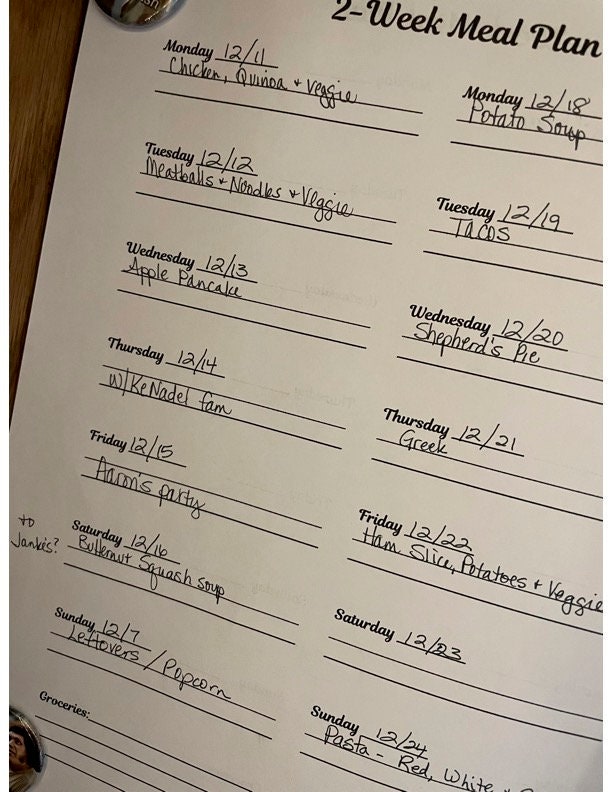 2-Week Meal Plan
Monday 12/11
Chicken, Quinoa + Veggie
Tuesday 12/12
Meatballs + Noodles + Veggie
Wednesday 12/13
Apple Pancake
Thursday 12/14
w/ KeNadel fam
Friday 12/15
Aaron's party
to
Jankes?
Saturday 12/16
Butternut Squash soup
Sunday 12/7
Leftovers / Popcorn
Groceries:
Monday 12/18
Potato Soup
Tuesday 12/19
Tacos
Wednesday 12/20
Shepherd's Pie
Thursday 12/21
Greek
Friday 12/22
Ham Slice, Potatoes + Veggie
Saturday 12/23
Sunday 12/24
Pasta - Red, White +